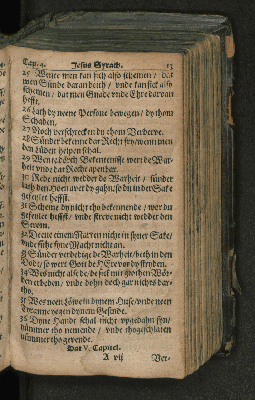 Cap. 4. Jesus Syrach. 13
25 Wente men kan sick also schemen / dat
men Sünde daran deith / vnde kan sick also
schemen / dat men Gnade vnde Ehre daruan
hefft.
26 Lath dy nene Persone bewegen / dy thom
Schaden.
27 Noch vorschrecken dy thom Vorderue.
28 Sünder bekenne dat Recht fry / wenn men
den Lüden helpen schal.
29 Wente dörch Bekentenisse wert de War-
heit vnde dat Recht apenbar.
30 Rede nicht wedder de Warheit / sünder
lath den Hoen auer dy gahn / so du in der Sake
gefeilet heffst.
31 Scheme dy nicht tho bekennende / wor du
gefeilet heffst / vnde streue nicht wedder den
Strom.
32 Deene einem Narren nicht in syner Sake /
vnde sühe syne Macht nicht an.
33 Sünder vordedige de Warheit beth in den
Dodt / so wert Godt de HEre vor dy stryden.
34 Wes nicht alse de / de sick mit groten Wör-
den erbeden / vnde dohn doch gar nichts dar-
tho.
35 Wes neen Löwe in dynem Huse / vnde neen
Tyranne yegen dyn Gesinde.
36 Dyne Handt schal nicht vpgedahn syn /
jümmer tho nemende / vnde thogeschlaten
nümmer tho geuende.
Dat V. Capittel.
A vij Ver-